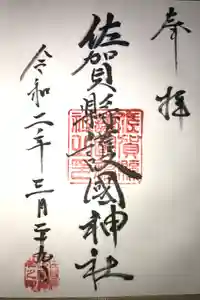 奉拝
佐賀縣護國神社
令和二年三月二十九日